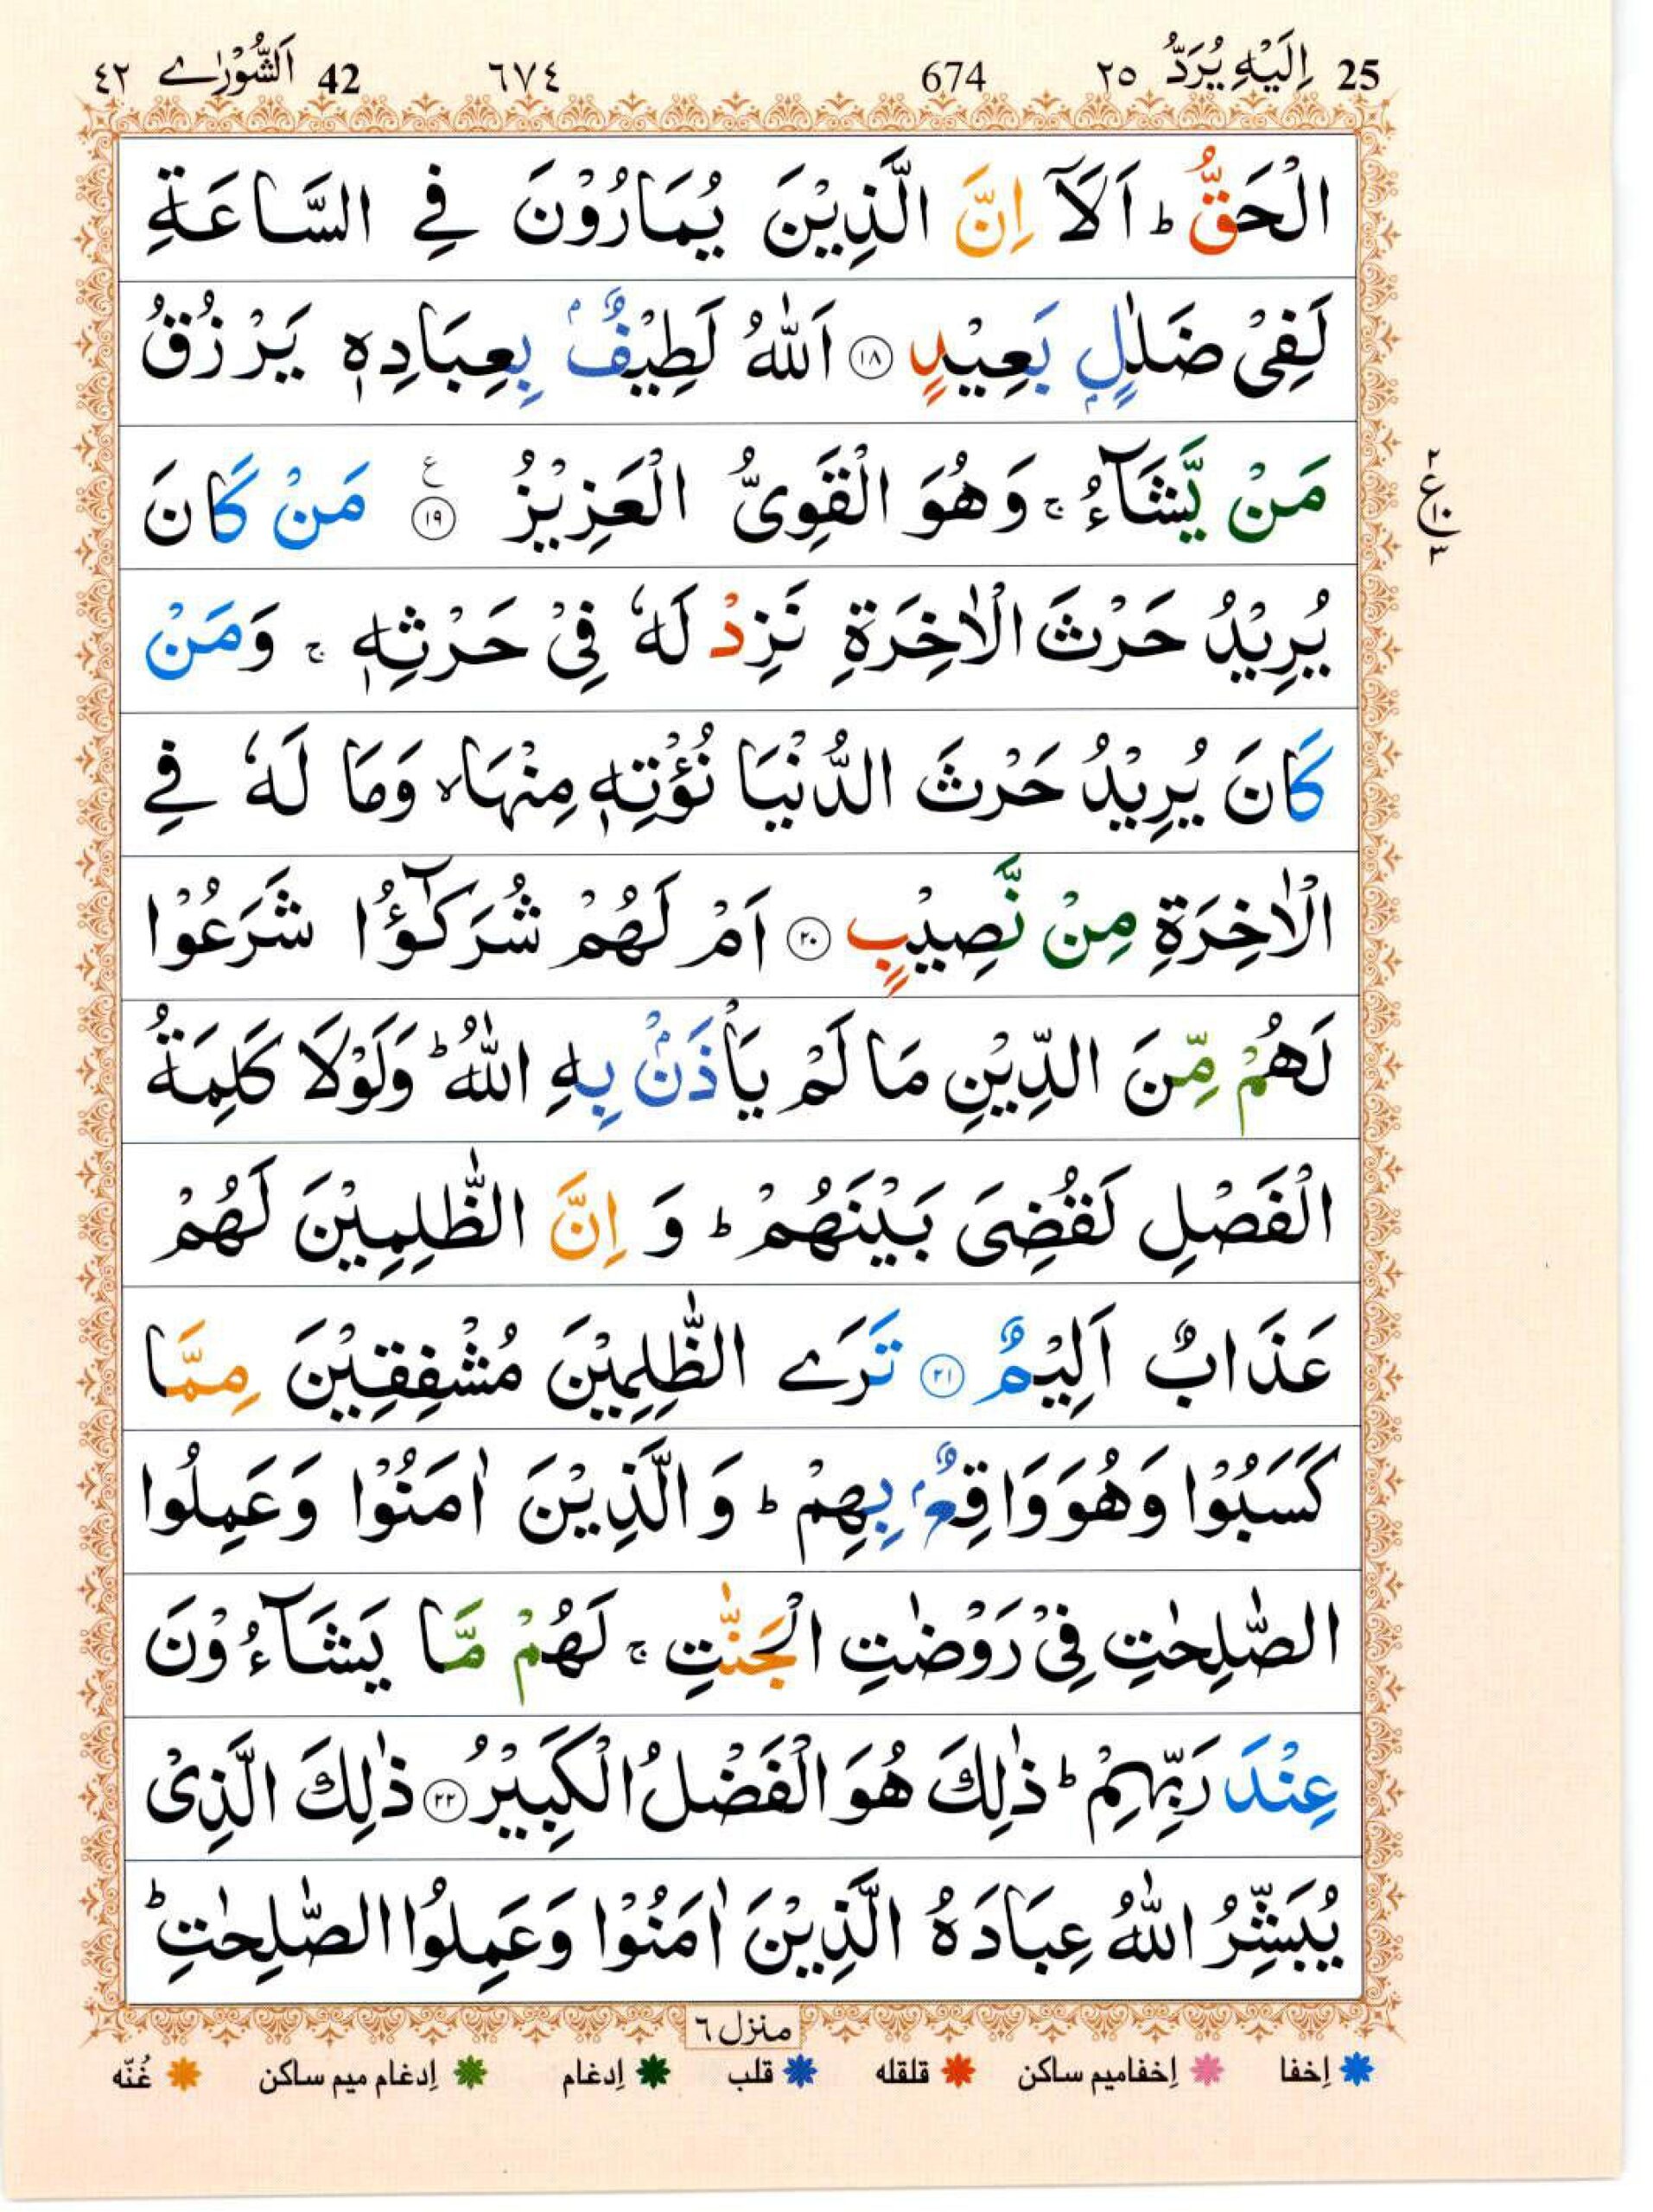 25 اِلَيْهِ يُرَدُّ ٢٥ 674 ٦٧٤ 42 اَلشُّوْرٰے ٤٢
الْحَقُّ ؕ اَلَاۤ اِنَّ الَّذِيْنَ يُمَارُوْنَ فِے السَّاعَةِ
لَفِىْ ضَلٰلٍۭ بَعِيْدٍ ۝١٨ اَللّٰهُ لَطِيْفٌۢ بِعِبَادِهٖ يَرْزُقُ
مَنْ يَّشَآءُ ۚ وَهُوَ الْقَوِىُّ الْعَزِيْزُ ۝١٩ ع مَنْ كَانَ
٢ ع ١٠ ٣
يُرِيْدُ حَرْثَ الْاٰخِرَةِ نَزِدْ لَهٗ فِىْ حَرْثِهٖ ۚ وَمَنْ
كَانَ يُرِيْدُ حَرْثَ الدُّنْيَا نُؤْتِهٖ مِنْهَا ۙ وَمَا لَهٗ فِے
الْاٰخِرَةِ مِنْ نَّصِيْبٍ ۝٢٠ اَمْ لَهُمْ شُرَكٰٓؤُا شَرَعُوْا
لَهُمْ مِّنَ الدِّيْنِ مَا لَمْ يَاْذَنْۢ بِهِ اللّٰهُ ؕ وَلَوْلَا كَلِمَةُ
الْفَصْلِ لَقُضِىَ بَيْنَهُمْ ؕ وَ اِنَّ الظّٰلِمِيْنَ لَهُمْ
عَذَابٌ اَلِيْمٌ ۝٢١ تَرَے الظّٰلِمِيْنَ مُشْفِقِيْنَ مِمَّا
كَسَبُوْا وَهُوَ وَاقِعٌۢ بِهِمْ ؕ وَ الَّذِيْنَ اٰمَنُوْا وَعَمِلُوا
الصّٰلِحٰتِ فِىْ رَوْضٰتِ الْجَنّٰتِ ۚ لَهُمْ مَّا يَشَآءُوْنَ
عِنْدَ رَبِّهِمْ ؕ ذٰلِكَ هُوَ الْفَضْلُ الْكَبِيْرُ ۝٢٢ ذٰلِكَ الَّذِىْ
يُبَشِّرُ اللّٰهُ عِبَادَهُ الَّذِيْنَ اٰمَنُوْا وَعَمِلُوا الصّٰلِحٰتِ ؕ
منزل ٦
اِخفا اِخفامیم ساکن قلقله قلب اِدغام اِدغام میم ساکن غُنّه